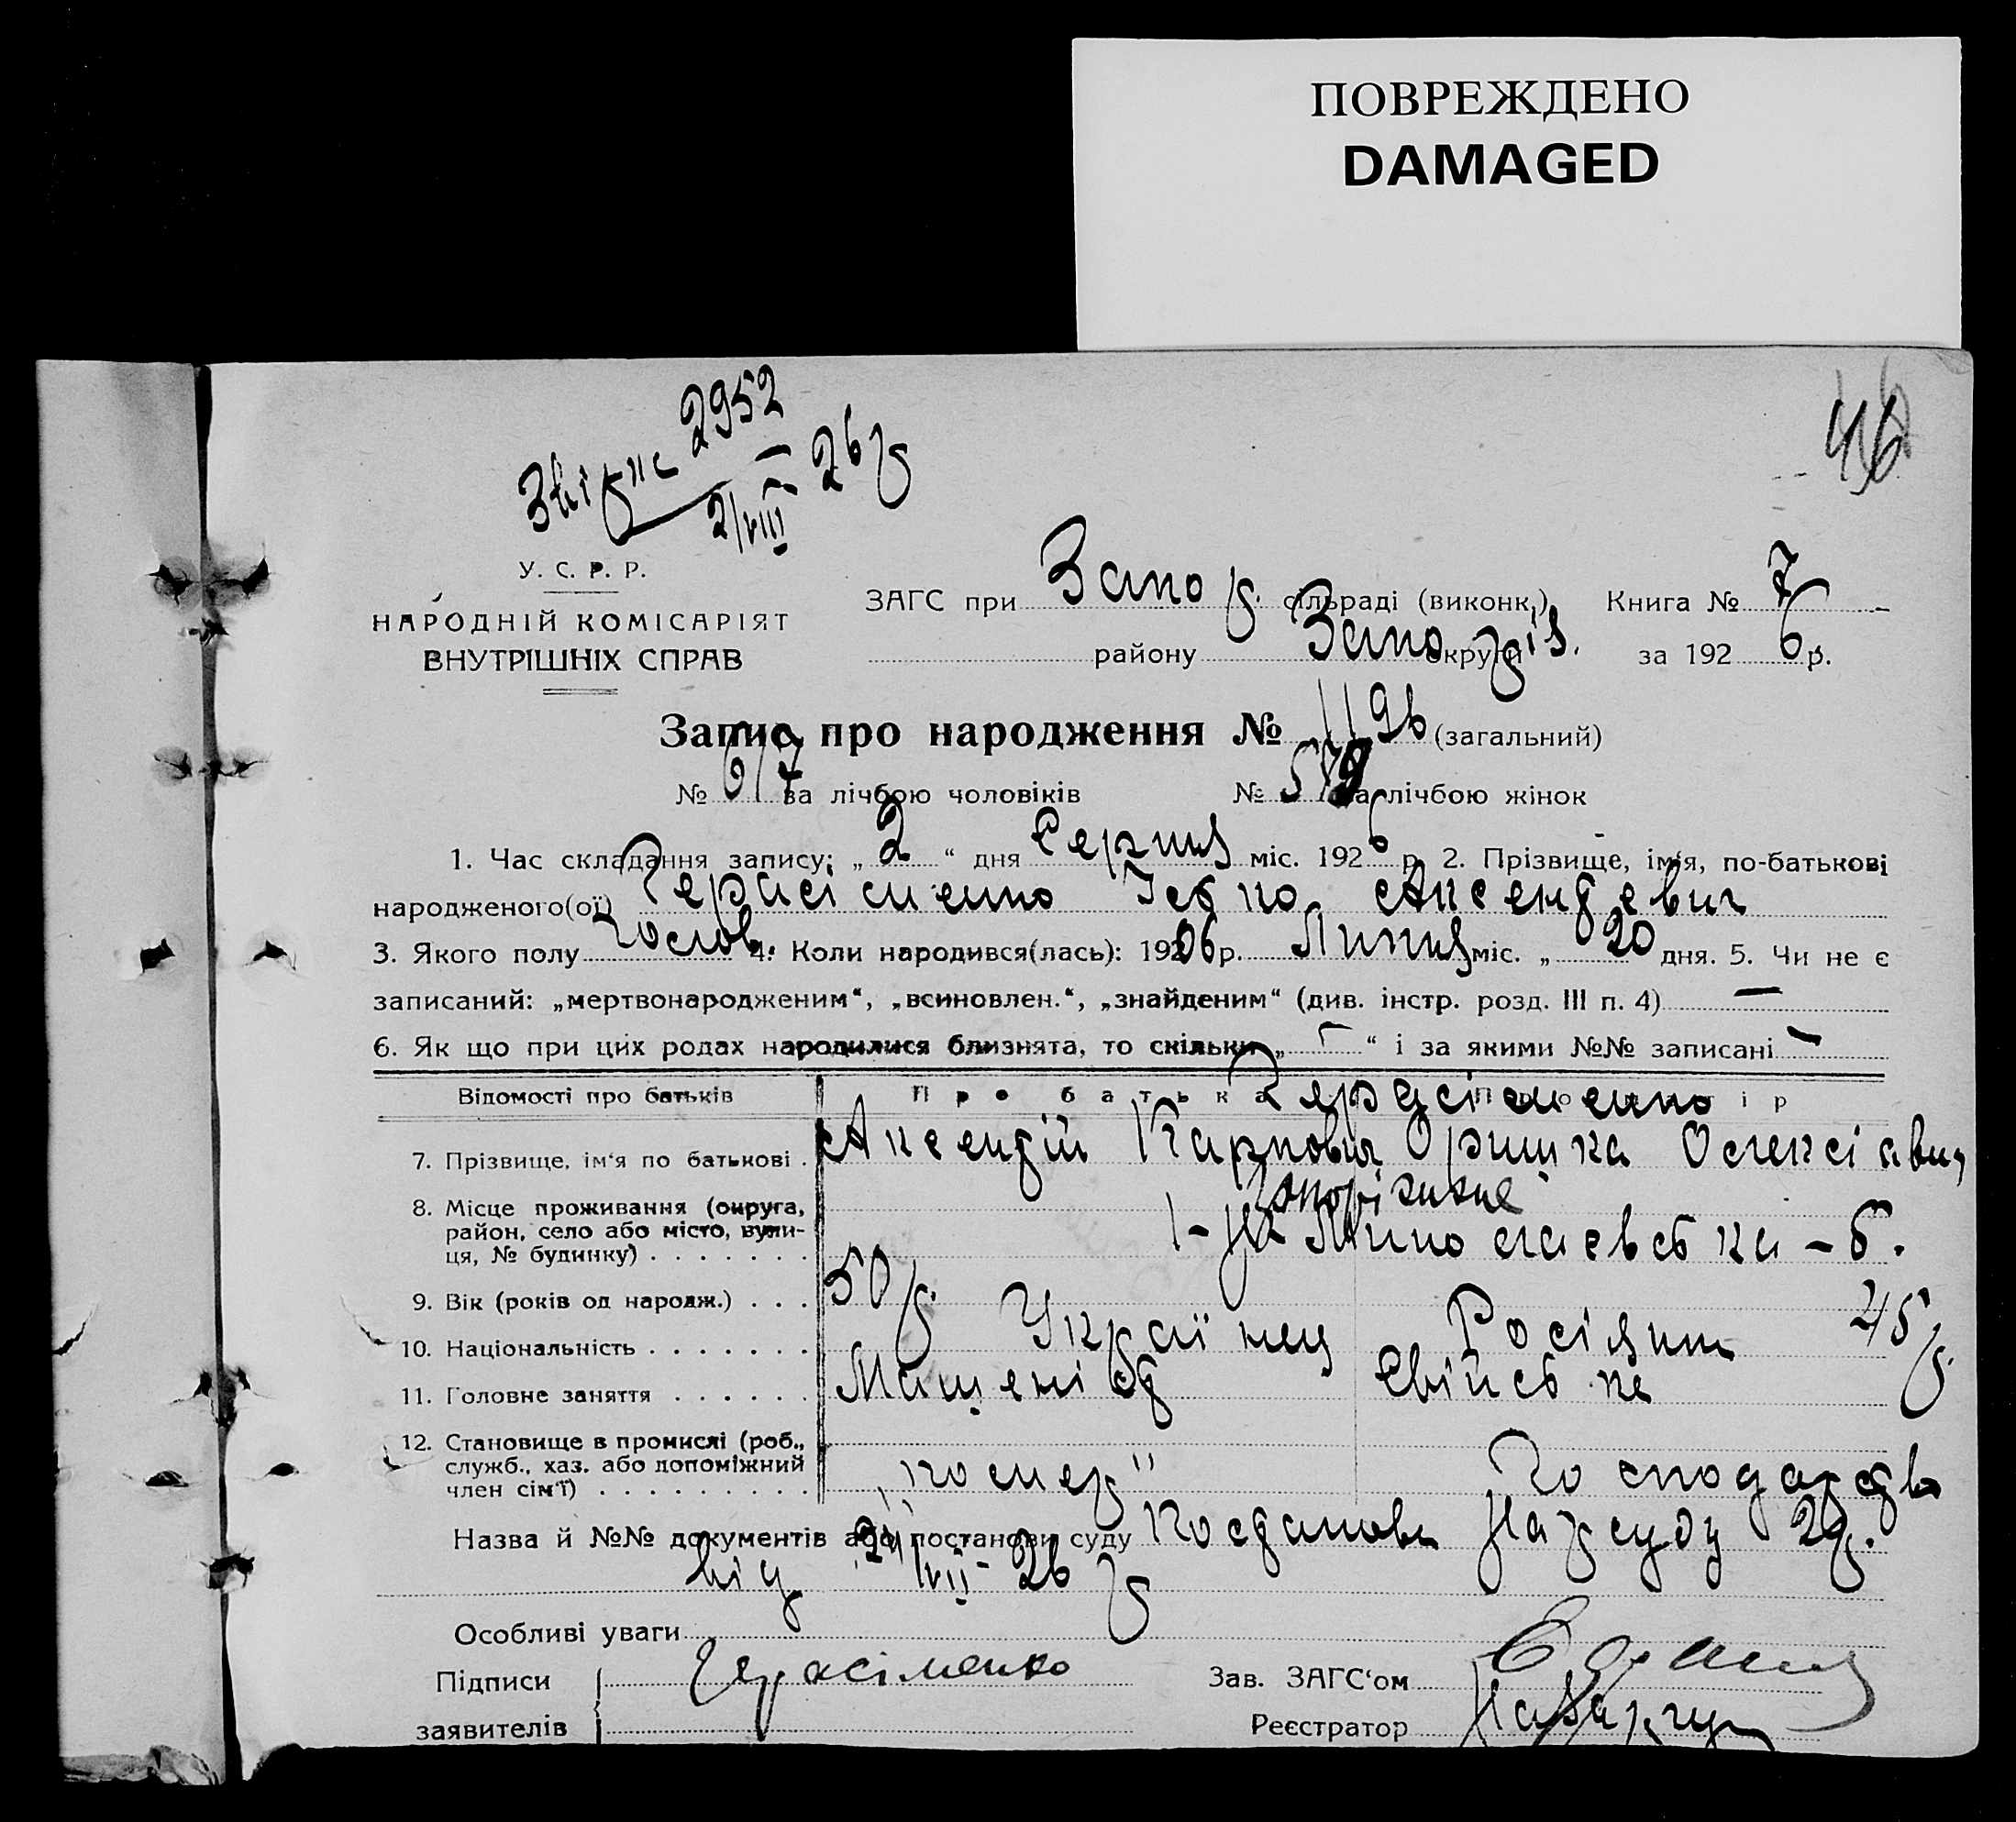 ПОВРЕЖДЕНО
DAMAGED
46
2952
2/VIII 26 р
У. С. Р. Р.
НАРОДНІЙ КОМІСАРІЯТ
ВНУТРІШНІХ СПРАВ
ЗАГС при Запор. сільраді (виконк.) Книга № 7
району Запоріз. округи за 192 6 р.
Запис про народження № 1196 (загальний)
№ 617 за лічбою чоловіків № 579 за лічбою жінок
1. Час складання запису: „ 2 “ дня Серпня міс. 192 6 р. 2. Прізвище, ім‘я, по-батькові
народженого(ої) Герасіменко Авксентьевич
3. Якого полу чолов. 4. Коли народився(лась): 1906 р. Липня міс. „ 20 дня. 5. Чи не є
записаний: „мертвонародженим“, „всиновлен.“, „знайденим“ (див. інстр. розд. III п. 4) —
6. Як що при цих родах народилися близнята, то скільки „ — “ і за якими №№ записані —
Відомості про батьків Про батька Герасіменко Про матір
7. Прізвище, ім‘я по батькові . Аксентій Карпович Оришка Олексіавна
8. Місце проживання (округа, район, село або місто, вули-ця, № будинку) . . . . . . . Запоріжжe
1-ша Миколаевська – 5.
9. Вік (років од народж.) . . . 50 р. 45 р.
10. Національність . . . . . . . Українец Росіянка
11. Головне заняття . . . . . . Машеніст Свійське
12. Становище в промислі (роб., служб., хаз. або допоміжний член сім‘ї) . . . . . . . . . Господарство
Назва й №№ документів або постанови суду Постанова Нарсуду 2 р.
від 24/VII-26 р
Особливі уваги
Підписи заявителів Герасіменко
Зав. ЗАГС‘ом
Реєстратор